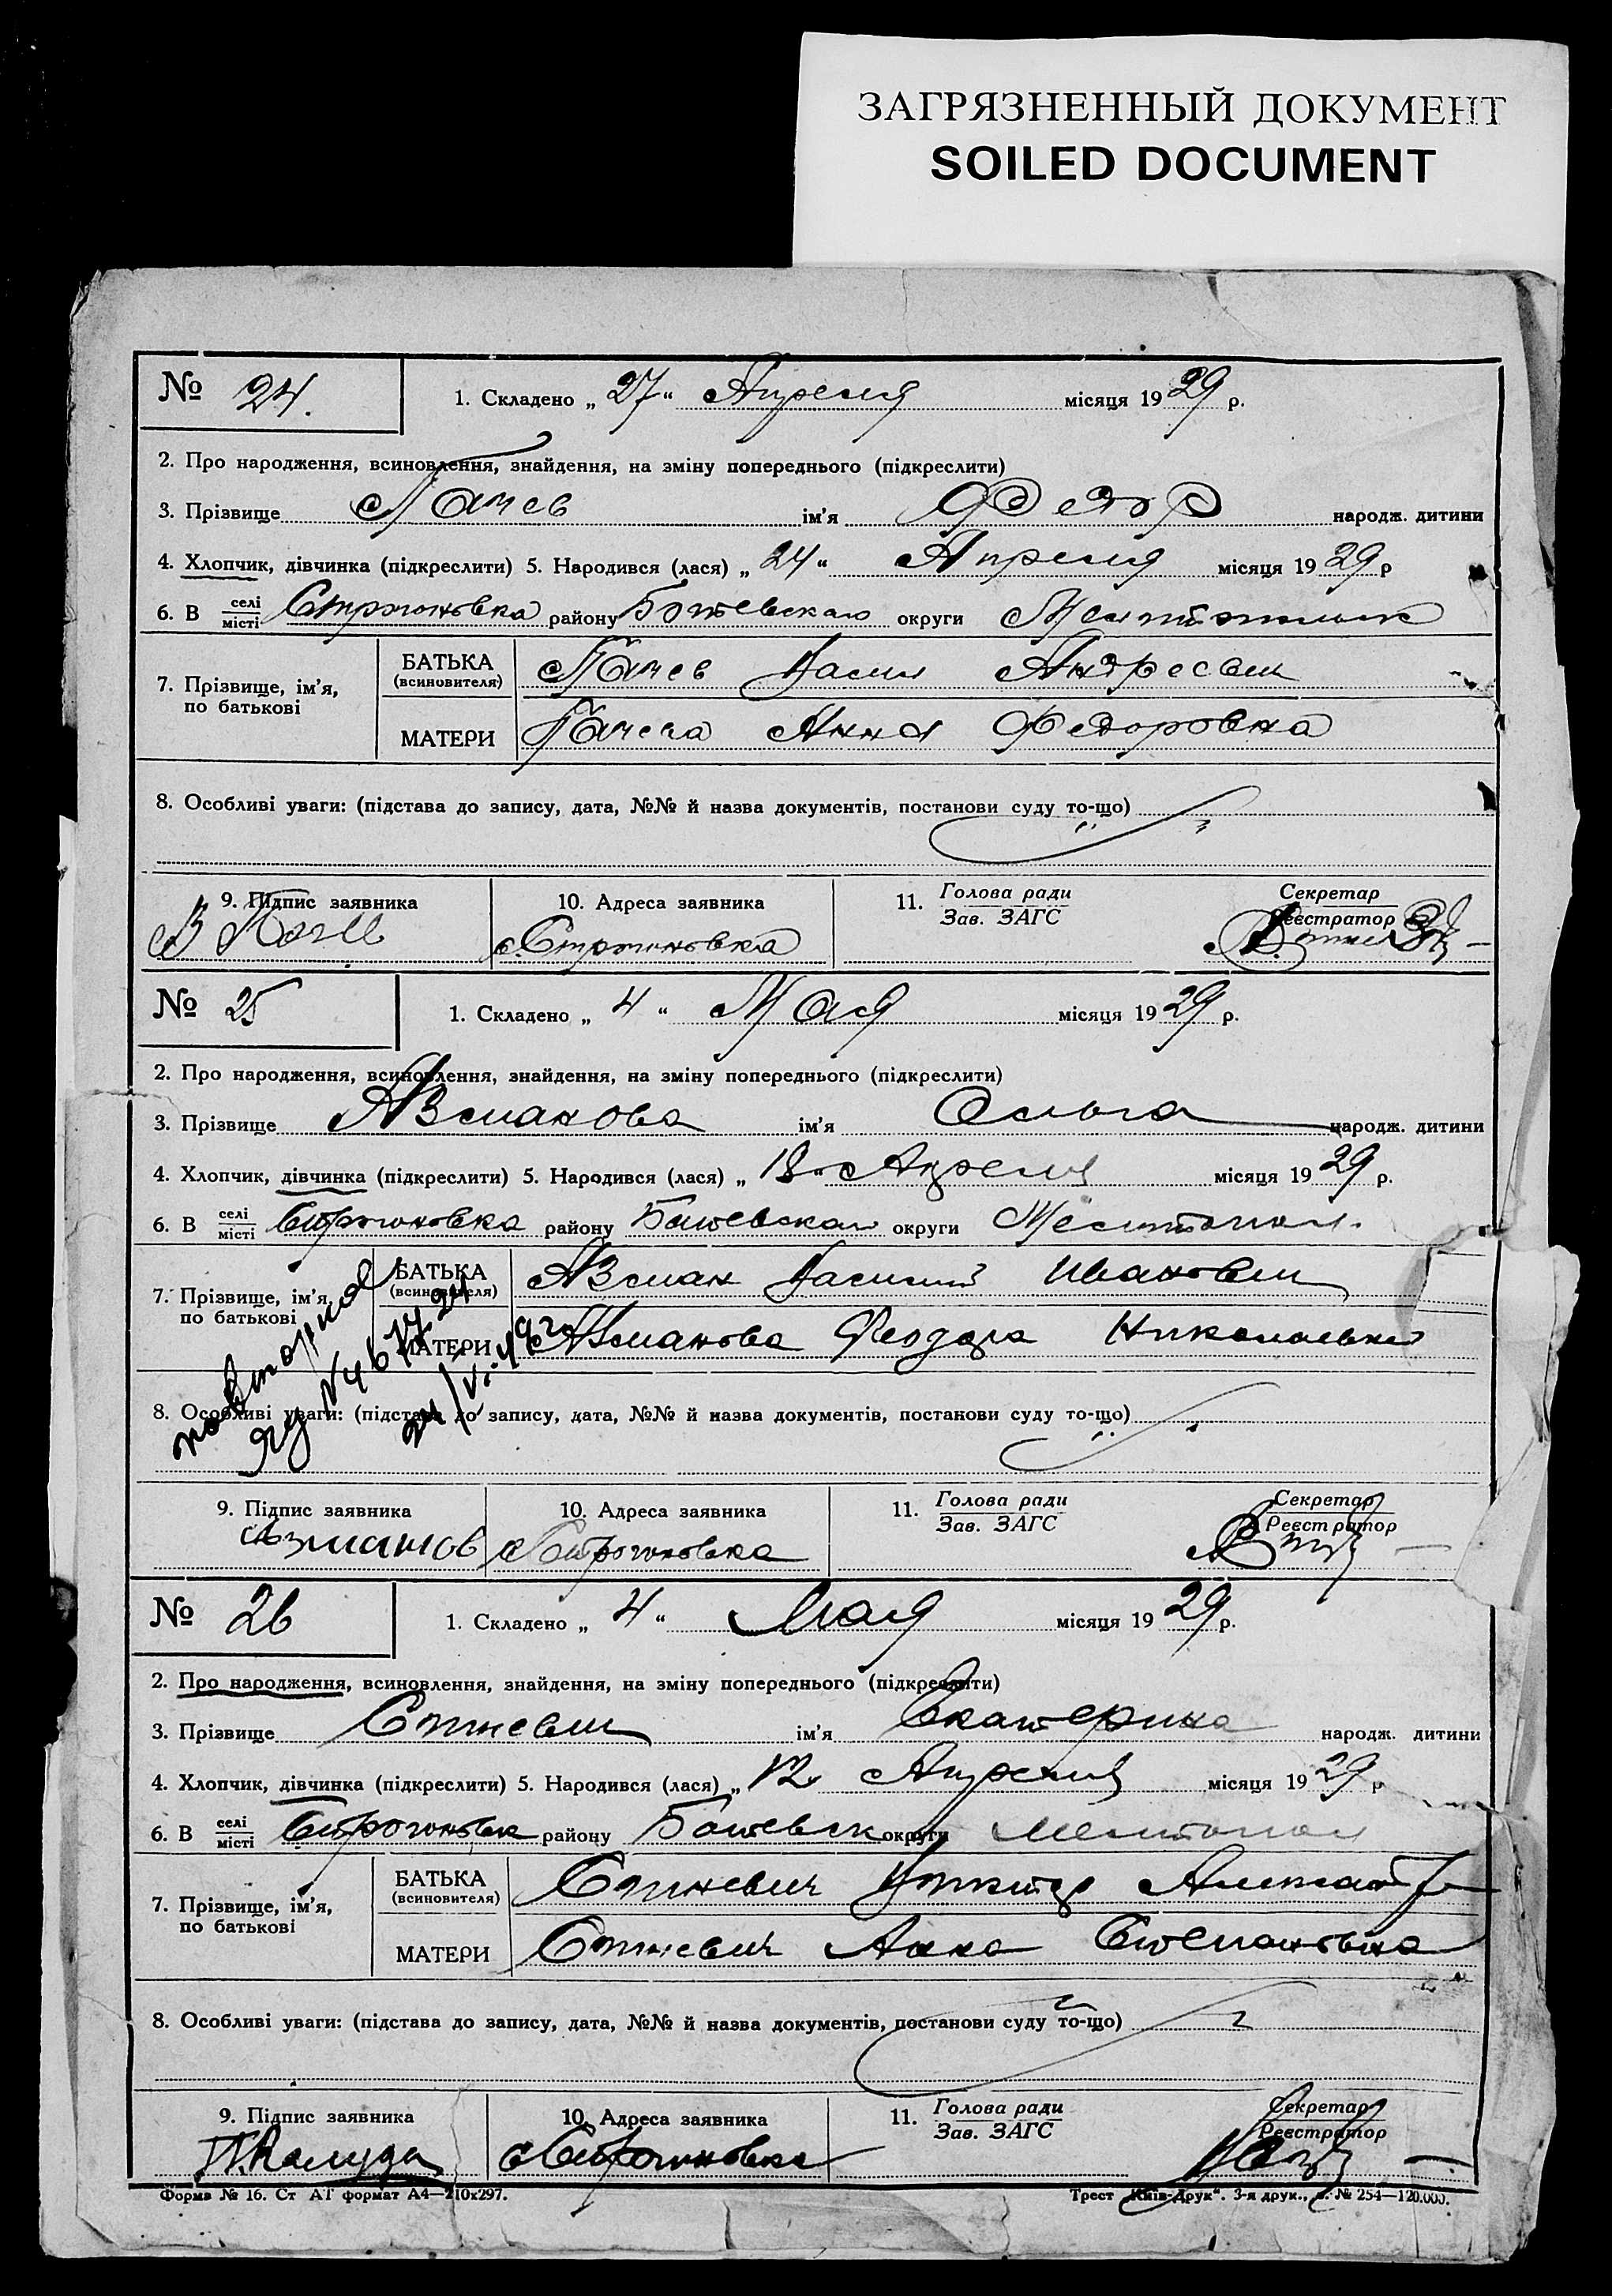 ЗАГРЯЗНЕННЫЙ ДОКУМЕНТ
SOILED DOCUMENT
№ 24. 1. Складено „27“ Апреля місяця 1929 р.
2. Про народження, всиновлення, знайдення, на зміну попереднього (підкреслити)
3. Прізвище Пачев ім'я Федор народж. дитини
4. Хлопчик, дівчинка (підкреслити) 5. Народився (лася) „24“ Апреля місяця 1929 р
6. В селі/місті Строгоновка району Ботевскаго округи
7. Прізвище, ім'я, по батькові
БАТЬКА (всиновителя) Пачев Васил Андреевич
МАТЕРИ Пачева Анна Федоровна
8. Особливі уваги: (підстава до запису, дата, №№ й назва документів, постанови суду то-що)
9. Підпис заявника 10. Адреса заявника 11. Голова ради Секретар
Зав. ЗАГС Реєстратор
с. Строгоновка
№ 25 1. Складено „4“ Мая місяця 1929 р.
2. Про народження, всиновлення, знайдення, на зміну попереднього (підкреслити)
3. Прізвище Азманова ім'я Ольга народж. дитини
4. Хлопчик, дівчинка (підкреслити) 5. Народився (лася) „18“ Апреля місяця 1929 р.
6. В селі/місті Строгоновка району округи
7. Прізвище, ім'я, по батькові
БАТЬКА (всиновителя) Азман Василий Иванович
МАТЕРИ Азманова Феодора Николаевна
8. Особливі уваги: (підстава до запису, дата, №№ й назва документів, постанови суду то-що)
9. Підпис заявника 10. Адреса заявника 11. Голова ради Секретар
Зав. ЗАГС Реєстратор
Азманов с Строгоновка
№ 26 1. Складено „4“ Мая місяця 1929 р.
2. Про народження, всиновлення, знайдення, на зміну попереднього (підкреслити)
3. Прізвище ім'я Екатерина народж. дитини
4. Хлопчик, дівчинка (підкреслити) 5. Народився (лася) „12 Апреля місяця 1929 р
6. В селі/місті району Ботевск округи Мелитопол
7. Прізвище, ім'я, по батькові
БАТЬКА (всиновителя)
МАТЕРИ Анна Степановна
8. Особливі уваги: (підстава до запису, дата, №№ й назва документів, постанови суду то-що)
9. Підпис заявника 10. Адреса заявника 11. Голова ради Секретар
Зав. ЗАГС Реєстратор
с Строгоновка
Форма № 16. Ст АТ формат А4—210х297. Трест „Київ-Друк“. 3-я друк., з. № 254—120.000.